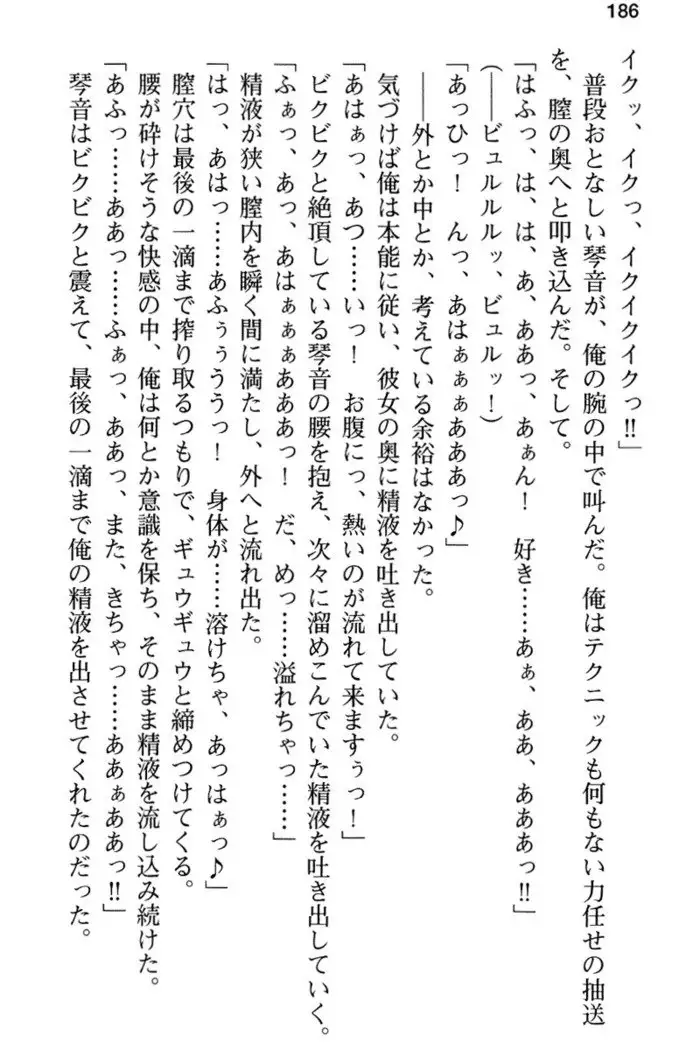 186
イクッ、イクっ、イクイクイクっ‼」
普段おとなしい琴音が、俺の腕の中で叫んだ。俺はテクニックも何もない力任せの抽送
を、膣の奥へと叩き込んだ。そして。
「はふっ、は、は、あ、ああっ、あぁん！　好き……あぁ、ああ、あああっ‼」
(――ビュルルルッ、ビュルッ！)
「あっひっ！　んっ、あはぁぁぁあああっ♪」
――外とか中とか、考えている余裕はなかった。
気づけば俺は本能に従い、彼女の奥に精液を吐き出していた。
「あはぁっ、あつ……いっ！　お腹にっ、熱いのが流れて来ますぅっ！」
ビクビクと絶頂している琴音の腰を抱え、次々に溜めこんでいた精液を吐き出していく。
「ふぁっ、あっ、あはぁぁぁあああっ！　だ、めっ……溢れちゃっ……」
精液が狭い膣内を瞬く間に満たし、外へと流れ出た。
「はっ、あはっ……あふぅぅううっ！　身体が……溶けちゃ、あっはぁっ♪」
膣穴は最後の一滴まで搾り取るつもりで、ギュウギュウと締めつけてくる。
腰が砕けそうな快感の中、俺は何とか意識を保ち、そのまま精液を流し込み続けた。
「あふっ……ああっ……ふぁっ、ああっ、また、きちゃっ……ああぁああっ‼」
琴音はビクビクと震えて、最後の一滴まで俺の精液を出させてくれたのだった。